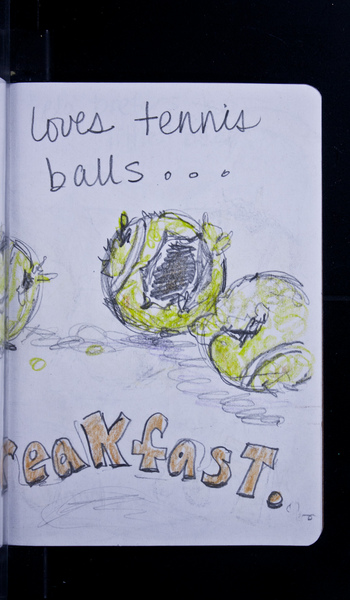 loves tennis
balls...
reakfast.